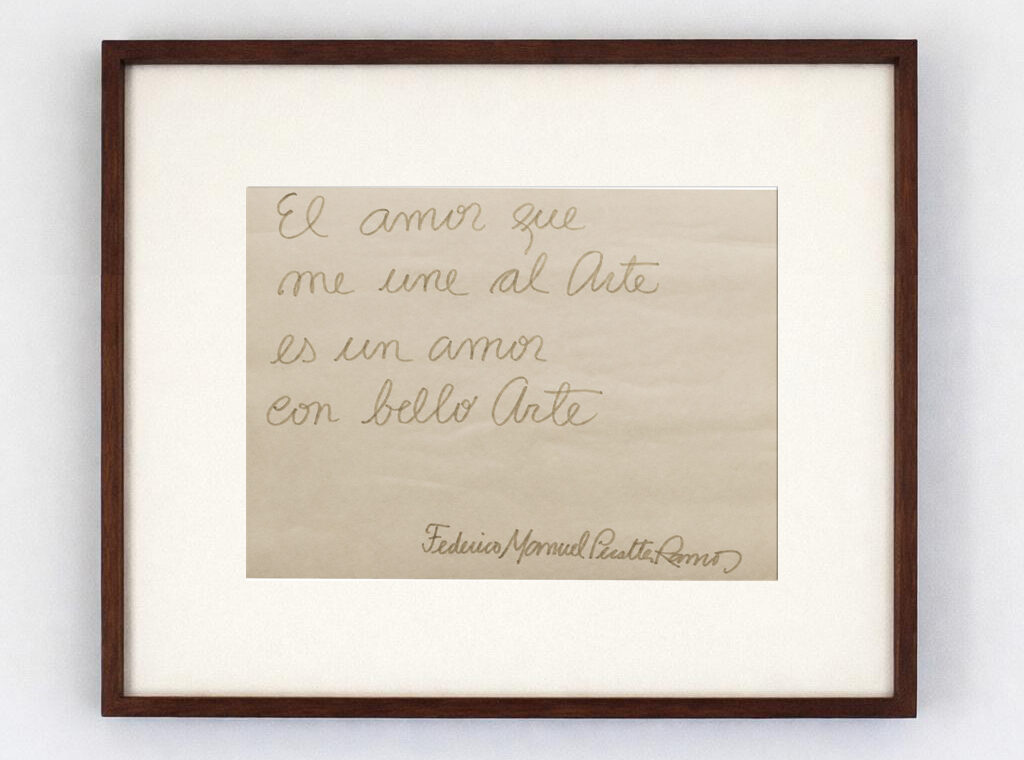 El amor que
me une al Arte
es un amor
con bello Arte
Federico Manuel Peralta Ramos